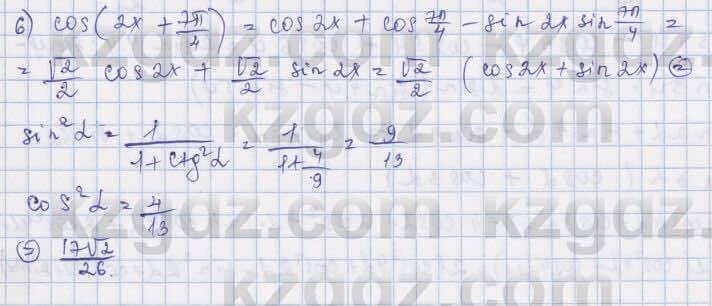 6) cos(2x + 7π/4) = cos 2x + cos 7π/4 - sin 2x sin 7π/4 =
= √2/2 cos 2x + √2/2 sin 2x = √2/2 (cos 2x + sin 2x) ⊜
sin²α = 1/(1 + ctg²α) = 1/(1 + 4/9) = 9/13
cos²α = 4/13
⊜ 17√2/26.
kzgdz.com
kzgdz.com
kzgdz.com